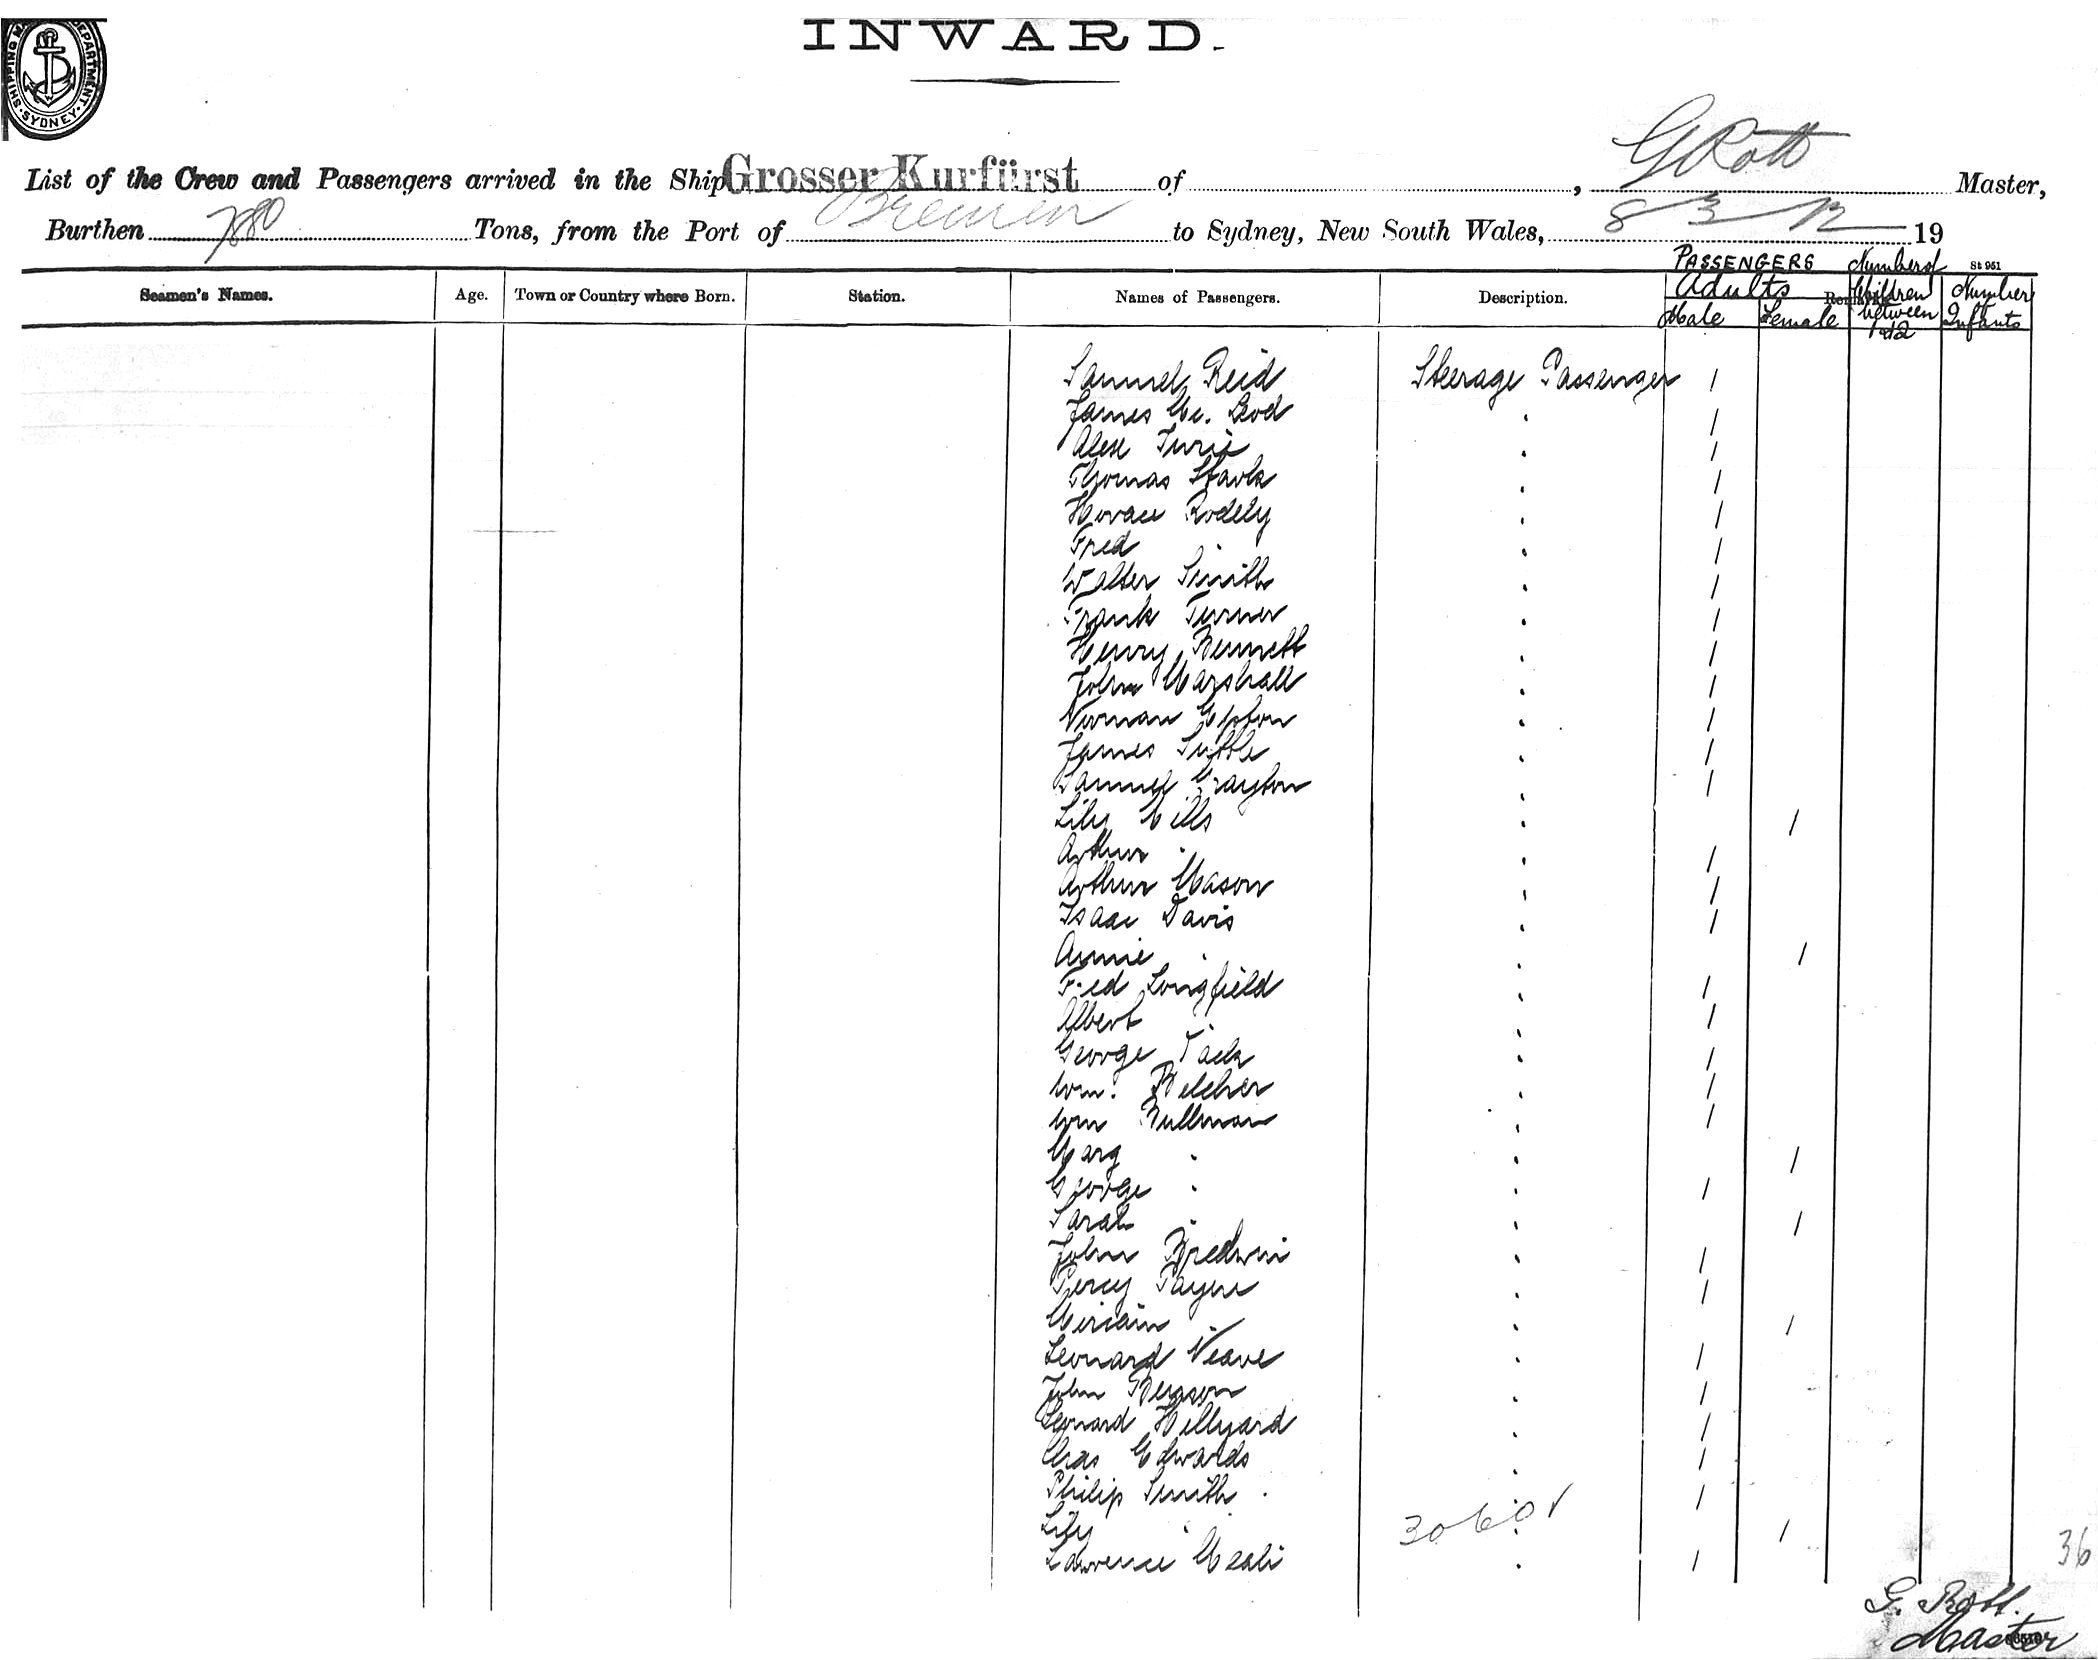 INWARD.
SHIPPING DEPARTMENT SYDNEY
List of the Crew and Passengers arrived in the Ship Grosser Kurfürst of , G Rott Master,
Burthen 7880 Tons, from the Port of Bremen to Sydney, New South Wales, 8 3 12 19
St 951
PASSENGERS Number of
Adults Children Number
Seamen's Names. Age. Town or Country where Born. Station. Names of Passengers. Description. Remarks
Male Female between Infants
1 & 12
Samuel Reid Steerage Passenger 1
James Mc. Leod " 1
Alex " 1
Thomas Stark " 1
Horace " 1
Fred " 1
Walter Smith " 1
Frank Turner " 1
Henry Bennett " 1
John Marshall " 1
Norman " 1
James Tuttle " 1
Samuel Grayton " 1
Lily Mills " 1
Arthur " " 1
Arthur Mason " 1
Isaac Davis " 1
Annie " " 1
Fred Longfield " 1
Albert " 1
George Pack " 1
Wm. Belcher " 1
Wm Bullman " 1
Mary " " 1
George " " 1
Sarah " " 1
John Bredwin " 1
Percy Payne " 1
Miriam " " 1
Leonard Neave " 1
John " 1
Leonard Hillyard " 1
Chas Edwards " 1
Philip Smith " 1
Lily " " 1
3060 ✓
Lawrence " 1
36
G. Rott.
Master